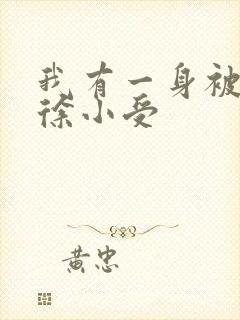 我有一身被
徐小受
黄忠